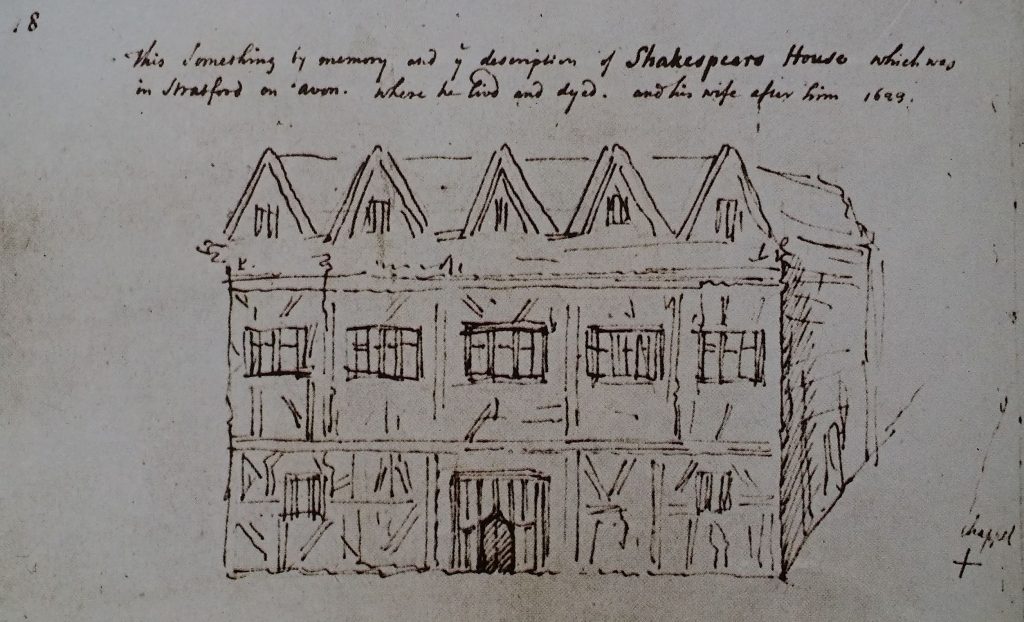 18
This Something by memory and ye description of Shakespears House which was
in Stratford on avon. where he livd and dyed. and his wife after him 1623.
chappel